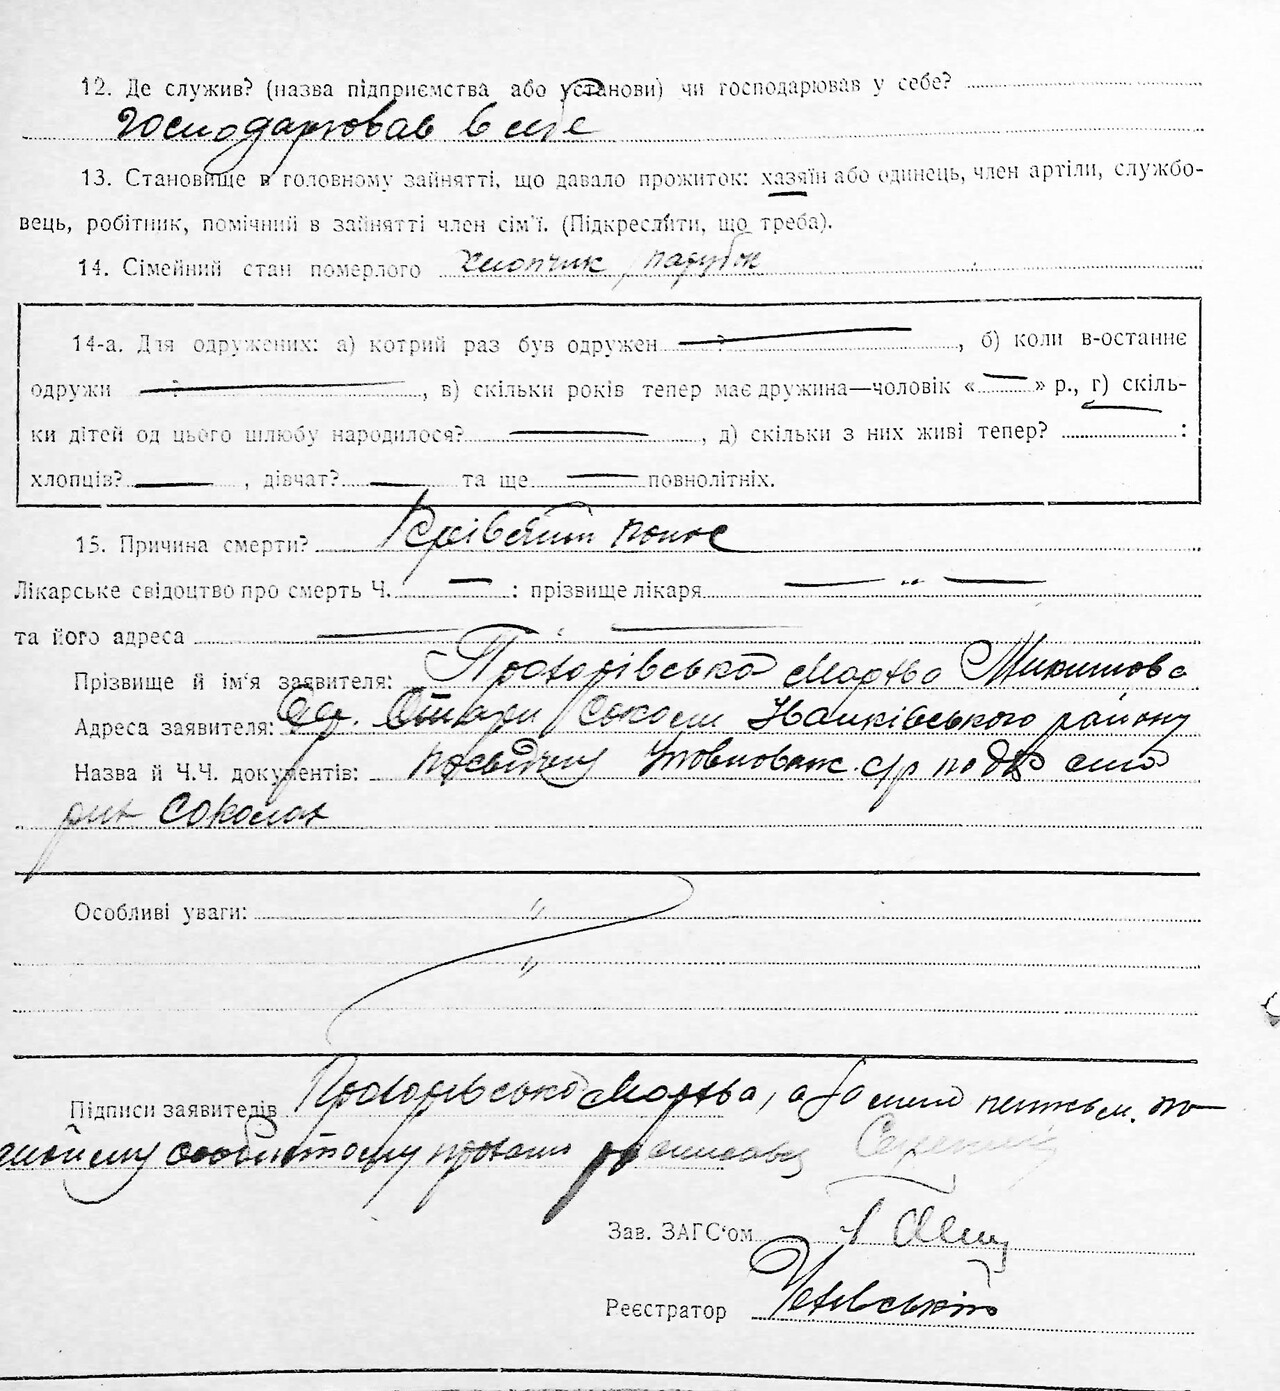 12. Де служив? (назва підприємства або установи) чи господарював у себе?
господарював в себе
13. Становище в головному зайнятті, що давало прожиток: хазяїн або одинець, член артіли, службо-
вець, робітник, помічний в зайнятті член сім'ї. (Підкреслити, що треба).
14. Сімейний стан померлого хлопчик, парубок
14-а. Для одружених: а) котрий раз був одружен ?, б) коли в-останнє
одружи ?, в) скільки років тепер має дружина—чоловік «—» р., г) скіль-
ки дітей од цього шлюбу народилося? —, д) скільки з них живі тепер? :
хлопців? —, дівчат? — та ще — повнолітніх.
15. Причина смерти? Крівавий понос
Лікарське свідоцтво про смерть Ч. — : прізвище лікаря — " —
та його адреса — —
Прізвище й ім'я заявителя: Прохорівська Марта
Адреса заявителя: Старі Соколи Іванківського району
Назва й Ч.Ч. документів: посвідку Уповноваж. с/р по
Соколах
Особливі уваги: "
"
Підписи заявителів Прохорівська Марта, а за неї неписьм. по
особистому прохани розписавсь
Зав. ЗАГС'ом
Реєстратор